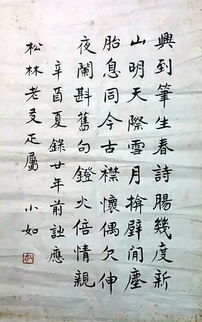 興到筆生春詩腸幾度新
山明天際雪月擀壁間塵
胎息同今古襟懷偶欠伸
夜闌斟舊句鐙火倍情親
辛酉夏錄廿年前詿應
松林老叟疋屬 小如